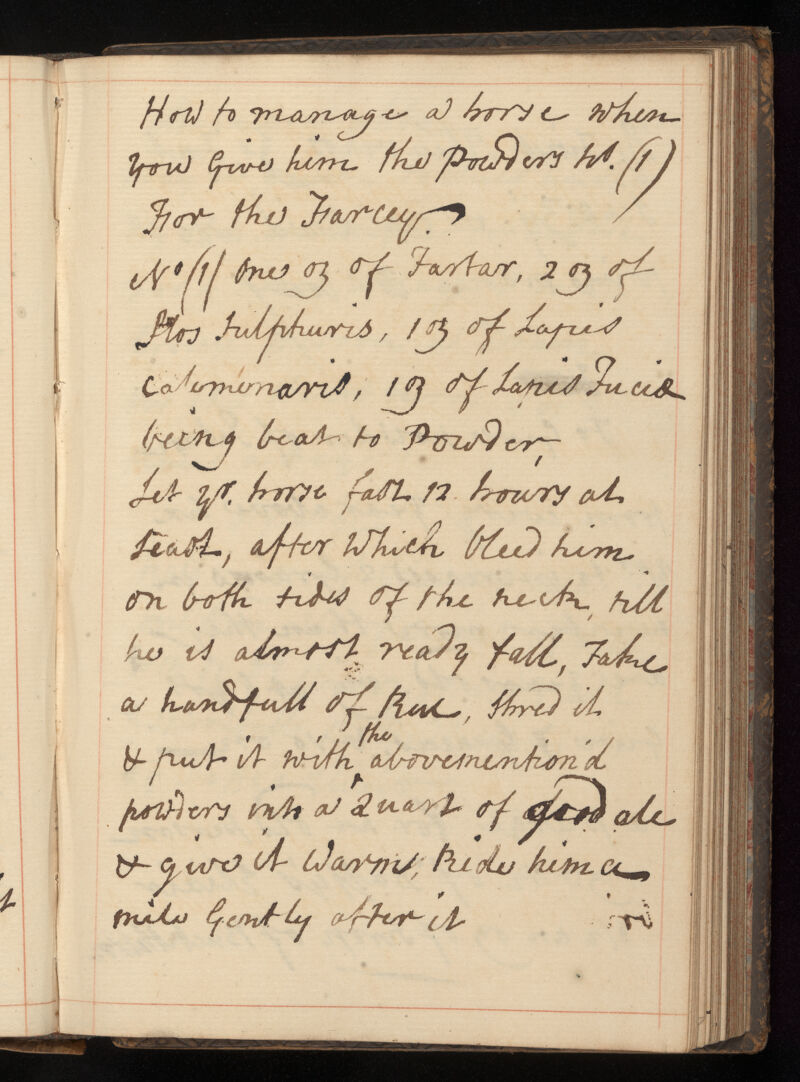 How to manage a horse when
you Give him the Powders No. (1)
For the Farcey
No (1) One oz of Tartar, 2 oz of
Flos Sulphuris, 1 oz of Lapis
Calominaris, 1 oz of Lapis Tuciæ
being beat to Powder,
Let yr. horse fast 12 hours at
Least, after Which bleed him
on both sides of the neck, till
he is almost ready fall, Take
a handfull of Rue, Shred it
& put it with the abovemention'd
powders into a Quart of good ale
& give it Warm, Ride him a
mile Gently after it